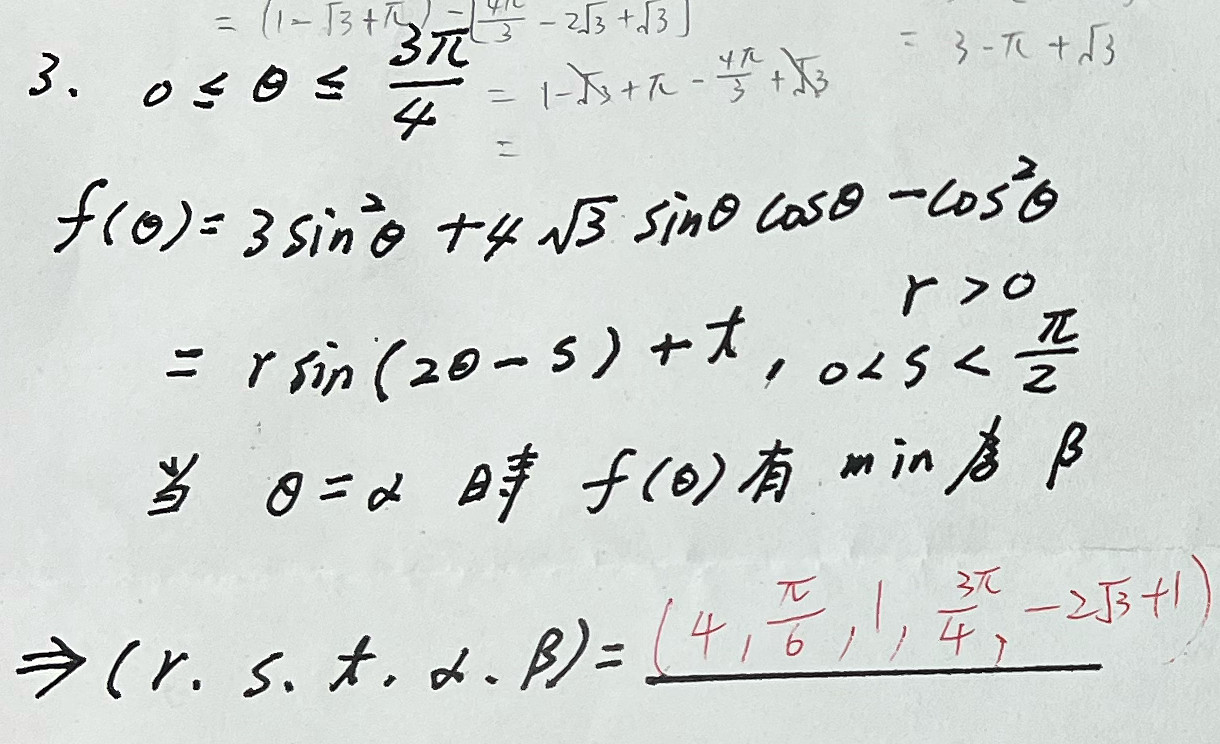 = (1-√3+π) - [4π/3 - 2√3+√3]
= 3-π+√3
= 1-√3+π-4π/3+√3
=
3. 0≤θ≤3π/4
f(θ)=3sin²θ+4√3 sinθ cosθ-cos²θ
r>0
= r sin(2θ-s)+t, 0<s<π/2
当 θ=α 時 f(θ)有 min 為 β
⇒(r. s. t. α. β)=(4, π/6, 1, 3π/4, -2√3+1)